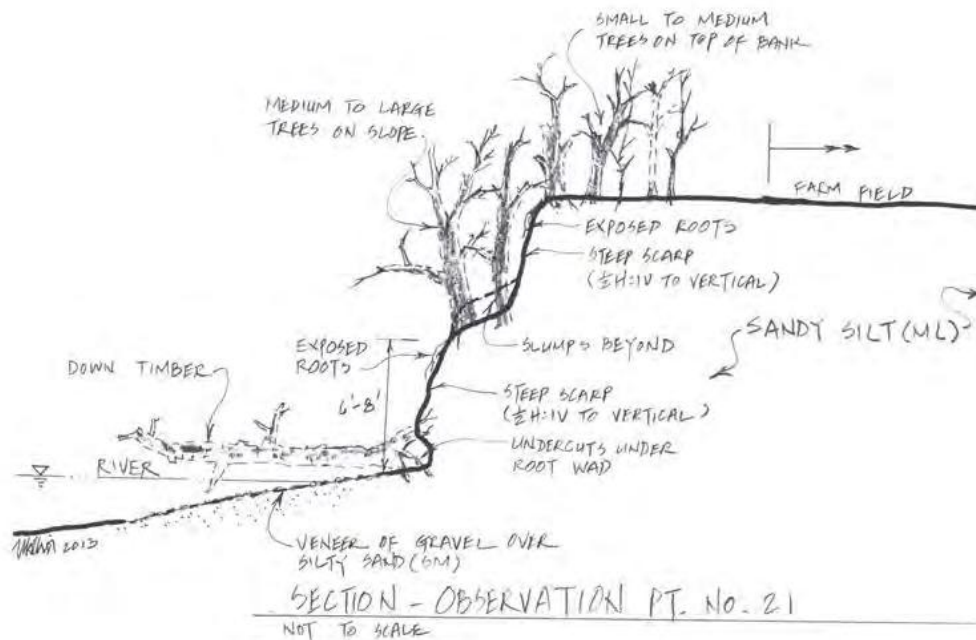 SMALL TO MEDIUM
TREES ON TOP OF BANK
MEDIUM TO LARGE
TREES ON SLOPE.
FARM FIELD
EXPOSED ROOTS
STEEP SCARP
(½H:1V TO VERTICAL)
SANDY SILT (ML)
EXPOSED
ROOTS
SLUMPS BEYOND
DOWN TIMBER
6'-8'
STEEP SCARP
(½H:1V TO VERTICAL)
UNDERCUTS UNDER
ROOT WAD
RIVER
2013
VENEER OF GRAVEL OVER
SILTY SAND (SM)
SECTION - OBSERVATION PT. NO. 21
NOT TO SCALE